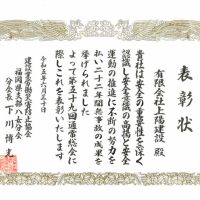 表彰状
有限会社上陽建設 殿
貴社は安全の重要性を深く
認識し安全意識の高揚と安全
運動の推進に不断の努力を
払い二十二年間無事故の成果を
挙げられました
よって第五十九回通常総会に
際しこれを表彰いたします
令和五年六月三十日
建設業労働災害防止協会
福岡県支部八女分会
分会長 下川 博